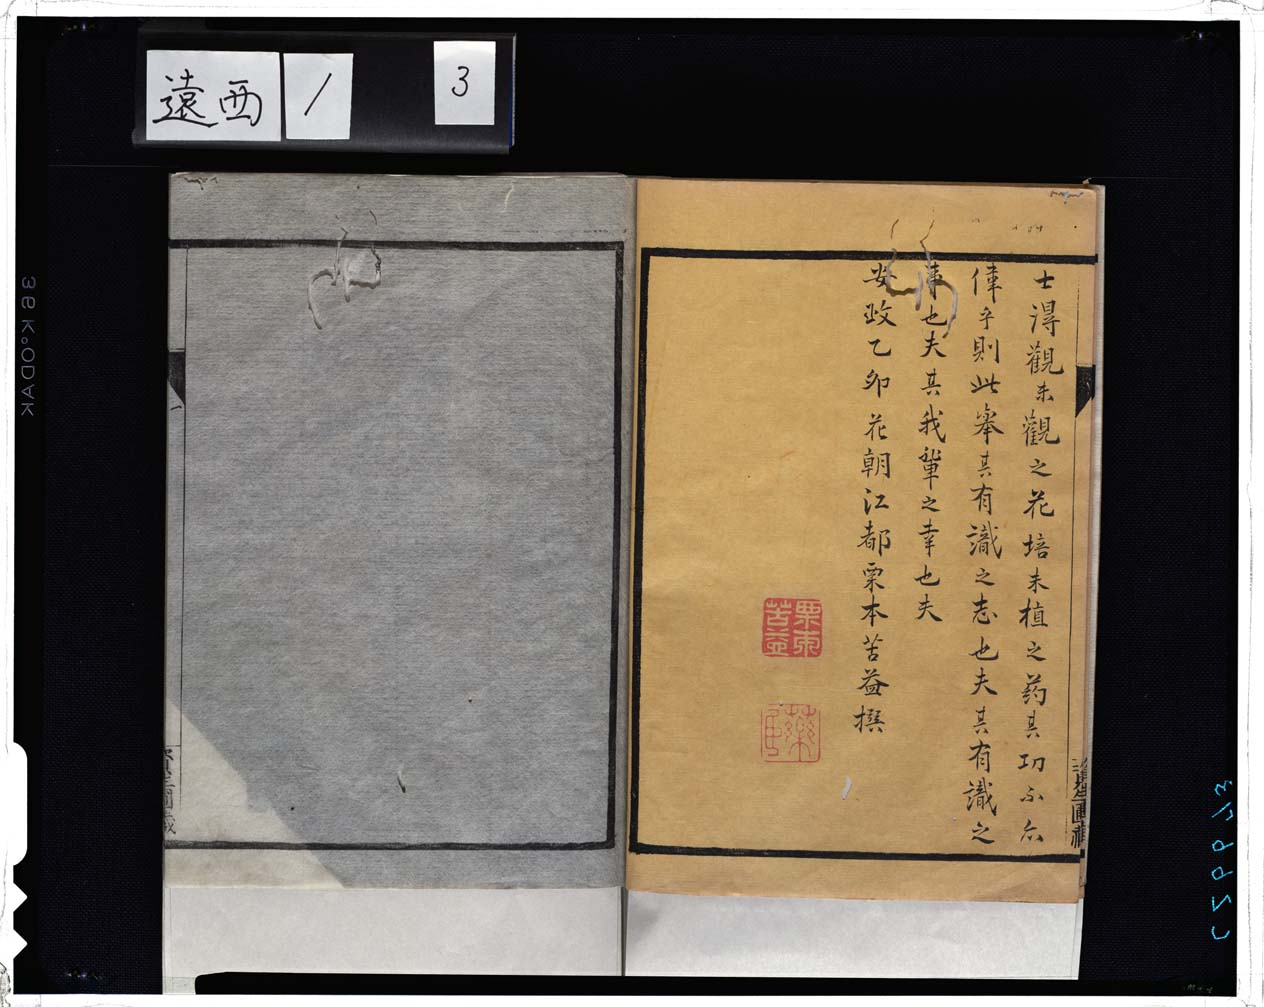 遠西
/
3
士得觀未觀之花培未植之药其功不亦
偉乎則此舉其有識之志也夫其有識之
事也夫其我輩之幸也夫
安政乙卯花朝江都栗本苦益撰
栗本
苦益